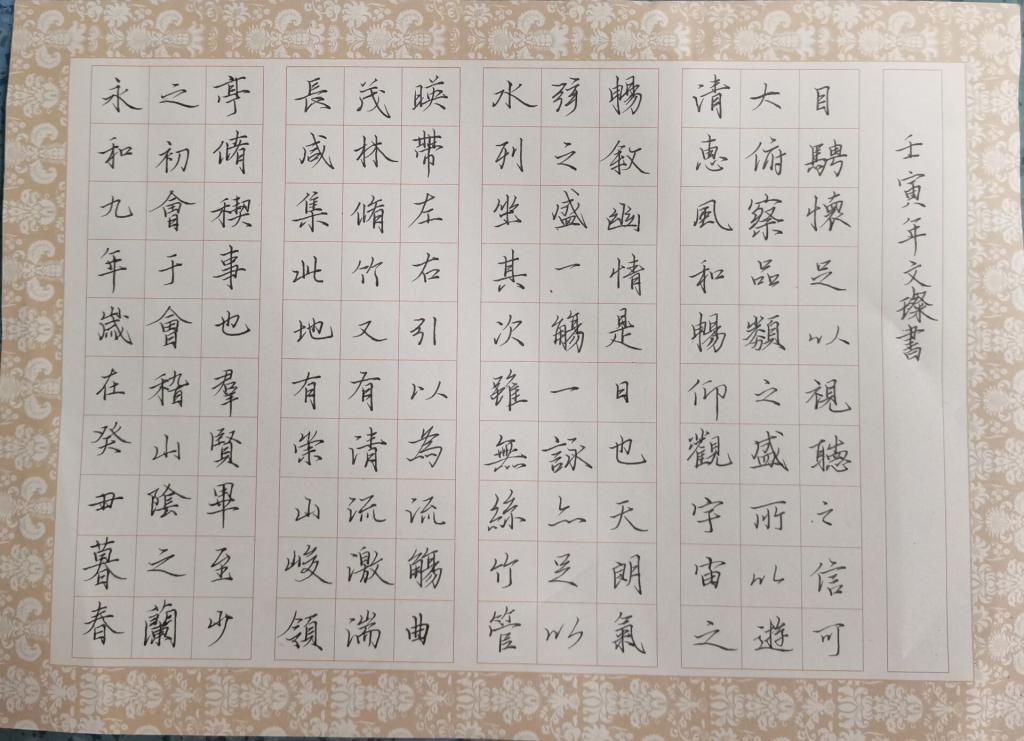 永和九年歲在癸丑暮春
之初會于會稽山陰之蘭
亭脩稧事也羣賢畢至少
長咸集此地有崇山峻領
茂林脩竹又有清流激湍
暎帶左右引以為流觴曲
水列坐其次雖無絲竹管
弦之盛一觴一詠亦足以
暢敘幽情是日也天朗氣
清惠風和暢仰觀宇宙之
大俯察品類之盛所以遊
目騁懷足以視聽之信可
壬寅年文璨書